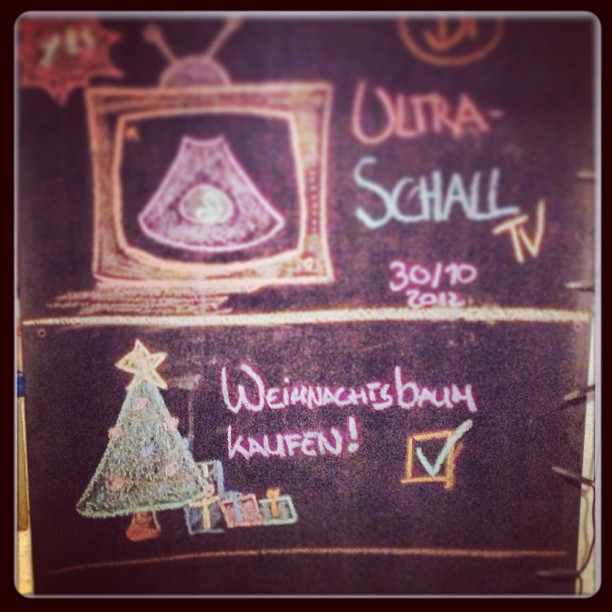 YES
ULTRA-
SCHALL
TV
30/10
2012
WEIHNACHTSBAUM
KAUFEN!